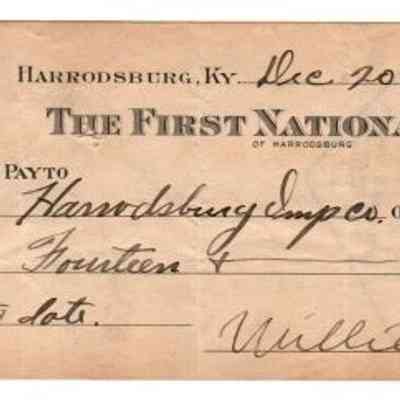 HARRODSBURG, KY. Dec 20
THE FIRST NATIONA
OF HARRODSBURG
PAY TO
Harrodsburg Imp co. o
Fourteen &
date.
Willie